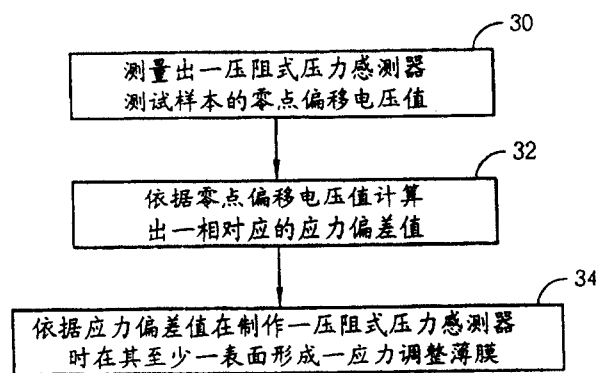 30
测量出一压阻式压力感测器
测试样本的零点偏移电压值
32
依据零点偏移电压值计算
出一相对应的应力偏差值
34
依据应力偏差值在制作一压阻式压力感测器
时在其至少一表面形成一应力调整薄膜